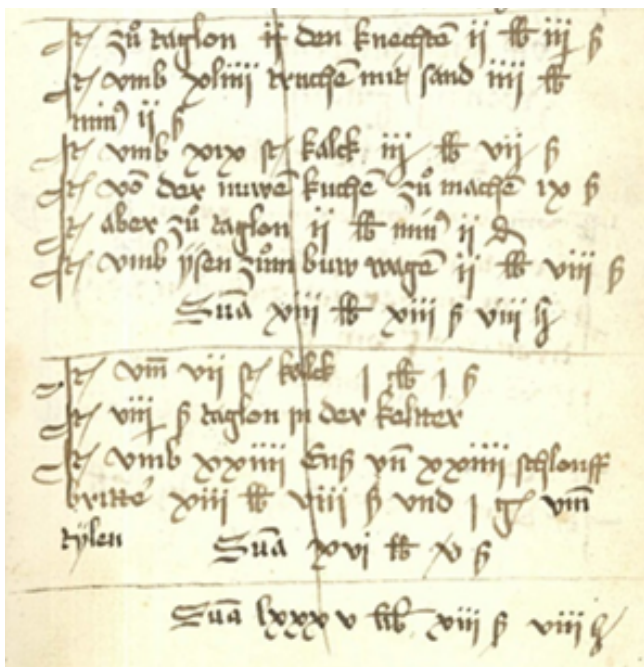 It zuͦ taglon ij den knechtē ij lb iij ß
It vmb xliiij truchē mit sand iiij lb
min⁹ ij ß
It vmb xix st kalck iij lb vij ß
It vō der nuwē kuchē zuͦ machē ix ß
It aber zuͦ taglon ij lb min⁹ ij d
It vmb ysen zuͦm buw wagē ij lb viij ß
Sūā xiij lb xiij ß viij h
It vm̄ vij st kalck j lb j ß
It viij ß taglon in der keltter
It vmb xxiiij vn̄ xxiiij schlouff
britté xiij lb viij ß vnd j vm̄
tylen
Sūā xvi lb x ß
Sūā lxxxv lb xiij ß viij h